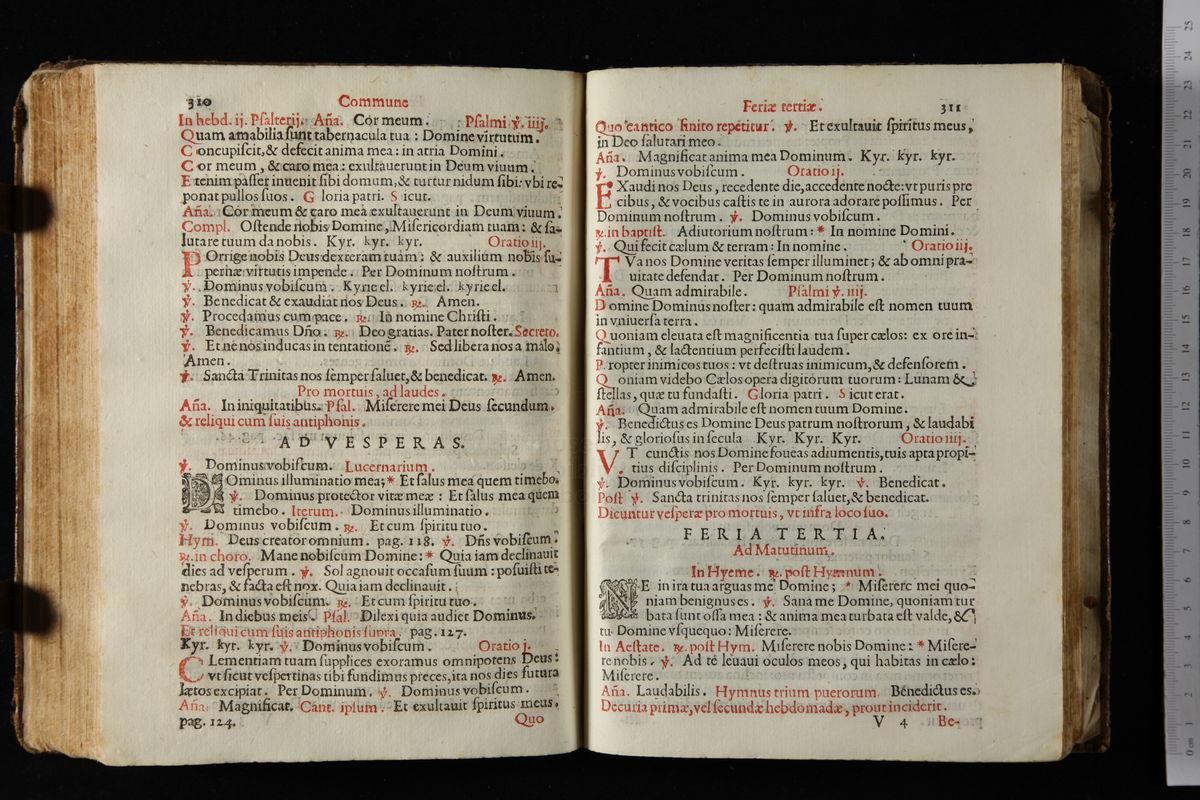 310 Commune
In hebd. ij. Pſalterij. Aña. Cor meum. Pſalmi ℣. iiij.
Quam amabilia ſunt tabernacula tua : Domine virtutum.
Concupiſcit, & defecit anima mea : in atria Domini.
Cor meum, & caro mea : exultauerunt in Deum viuum.
Etenim paſſer inuenit ſibi domum, & turtur nidum ſibi: vbi re-
ponat pullos ſuos. Gloria patri. Sicut.
Aña. Cor meum & caro mea exultauerunt in Deum viuum.
Compl. Oſtende nobis Domine, Miſericordiam tuam : & ſa-
lutare tuum da nobis. Kyr. kyr. kyr. Oratio iij.
POrrige nobis Deus dexteram tuam : & auxilium nobis ſu-
pernæ virtutis impende. Per Dominum noſtrum.
℣. Dominus vobiſcum. Kyrie el. kyrie el. kyrie el.
℣. Benedicat & exaudiat nos Deus. ℞. Amen.
℣. Procedamus cum pace. ℞. In nomine Chriſti.
℣. Benedicamus Dño. ℞. Deo gratias. Pater noſter. Secreto.
℣. Et ne nos inducas in tentationē. ℞. Sed libera nos a malo.
Amen.
℣. Sancta Trinitas nos ſemper ſaluet, & benedicat. ℞. Amen.
Pro mortuis, ad laudes.
Aña. In iniquitatibus. Pſal. Miſerere mei Deus ſecundum.
& reliqui cum ſuis antiphonis.
AD VESPERAS.
℣. Dominus vobiſcum. Lucernarium.
DOminus illuminatio mea; * Et ſalus mea quem timebo.
℣. Dominus protector vitæ meæ : Et ſalus mea quem
timebo. Iterum. Dominus illuminatio.
℣. Dominus vobiſcum. ℞. Et cum ſpiritu tuo.
Hym. Deus creator omnium. pag. 118. ℣. Dñs vobiſcum.
℞. in choro. Mane nobiſcum Domine : * Quia iam declinauit
dies ad veſperum. ℣. Sol agnouit occaſum ſuum : poſuiſti te-
nebras, & facta eſt nox. Quia iam declinauit.
℣. Dominus vobiſcum. ℞. Et cum ſpiritu tuo.
Aña. In diebus meis. Pſal. Dilexi quia audiet Dominus.
Et reliqui cum ſuis antiphonis ſupra. pag. 127.
Kyr. kyr. kyr. ℣. Dominus vobiſcum. Oratio j.
CLementiam tuam ſupplices exoramus omnipotens Deus:
vt ſicut veſpertinas tibi fundimus preces, ita nos dies futura
lætos excipiat. Per Dominum. ℣. Dominus vobiſcum.
Aña. Magnificat. Cant. ipſum. Et exultauit ſpiritus meus.
pag. 124. Quo
Feriæ tertiæ. 311
Quo cantico finito repetitur. ℣. Et exultauit ſpiritus meus,
in Deo ſalutari meo.
Aña. Magnificat anima mea Dominum. Kyr. kyr. kyr.
℣. Dominus vobiſcum. Oratio ij.
EXaudi nos Deus, recedente die, accedente nocte: vt puris pre
cibus, & vocibus caſtis te in aurora adorare poſſimus. Per
Dominum noſtrum. ℣. Dominus vobiſcum.
℞. in baptiſt. Adiutorium noſtrum : * In nomine Domini.
℣. Qui fecit cælum & terram : In nomine. Oratio iij.
TVa nos Domine veritas ſemper illuminet; & ab omni pra-
uitate defendat. Per Dominum noſtrum.
Aña. Quam admirabile. Pſalmi ℣. iiij.
Domine Dominus noſter : quam admirabile eſt nomen tuum
in vniuerſa terra.
Quoniam eleuata eſt magnificentia tua ſuper cælos: ex ore in-
fantium, & lactentium perfeciſti laudem.
Propter inimicos tuos : vt deſtruas inimicum, & defenſorem.
Qoniam videbo Cælos opera digitorum tuorum : Lunam &
ſtellas, quæ tu fundaſti. Gloria patri. Sicut erat.
Aña. Quam admirabile eſt nomen tuum Domine.
℣. Benedictus es Domine Deus patrum noſtrorum, & laudabi
lis, & glorioſus in ſecula Kyr. Kyr. Kyr. Oratio iiij.
VT cunctis nos Domine foueas adiumentis, tuis apta propi-
tius diſciplinis. Per Dominum noſtrum.
℣. Dominus vobiſcum. Kyr. kyr. kyr. ℣. Benedicat.
Poſt ℣. Sancta trinitas nos ſemper ſaluet, & benedicat.
Dicuntur veſperæ pro mortuis, vt infra loco ſuo.
FERIA TERTIA.
Ad Matutinum.
In Hyeme. ℞. poſt Hymnum.
NE in ira tua arguas me Domine; * Miſerere mei quo-
niam benignus es. ℣. Sana me Domine, quoniam tur
bata ſunt oſſa mea : & anima mea turbata eſt valde, &
tu Domine vſquequo : Miſerere.
In Aeſtate. ℞. poſt Hym. Miſerere nobis Domine : * Miſere-
re nobis. ℣. Ad te leuaui oculos meos, qui habitas in cælo:
Miſerere.
Aña. Laudabilis. Hymnus trium puerorum. Benedictus es.
Decuria primæ, vel ſecundæ hebdomadæ, prout inciderit.
V 4 Be-